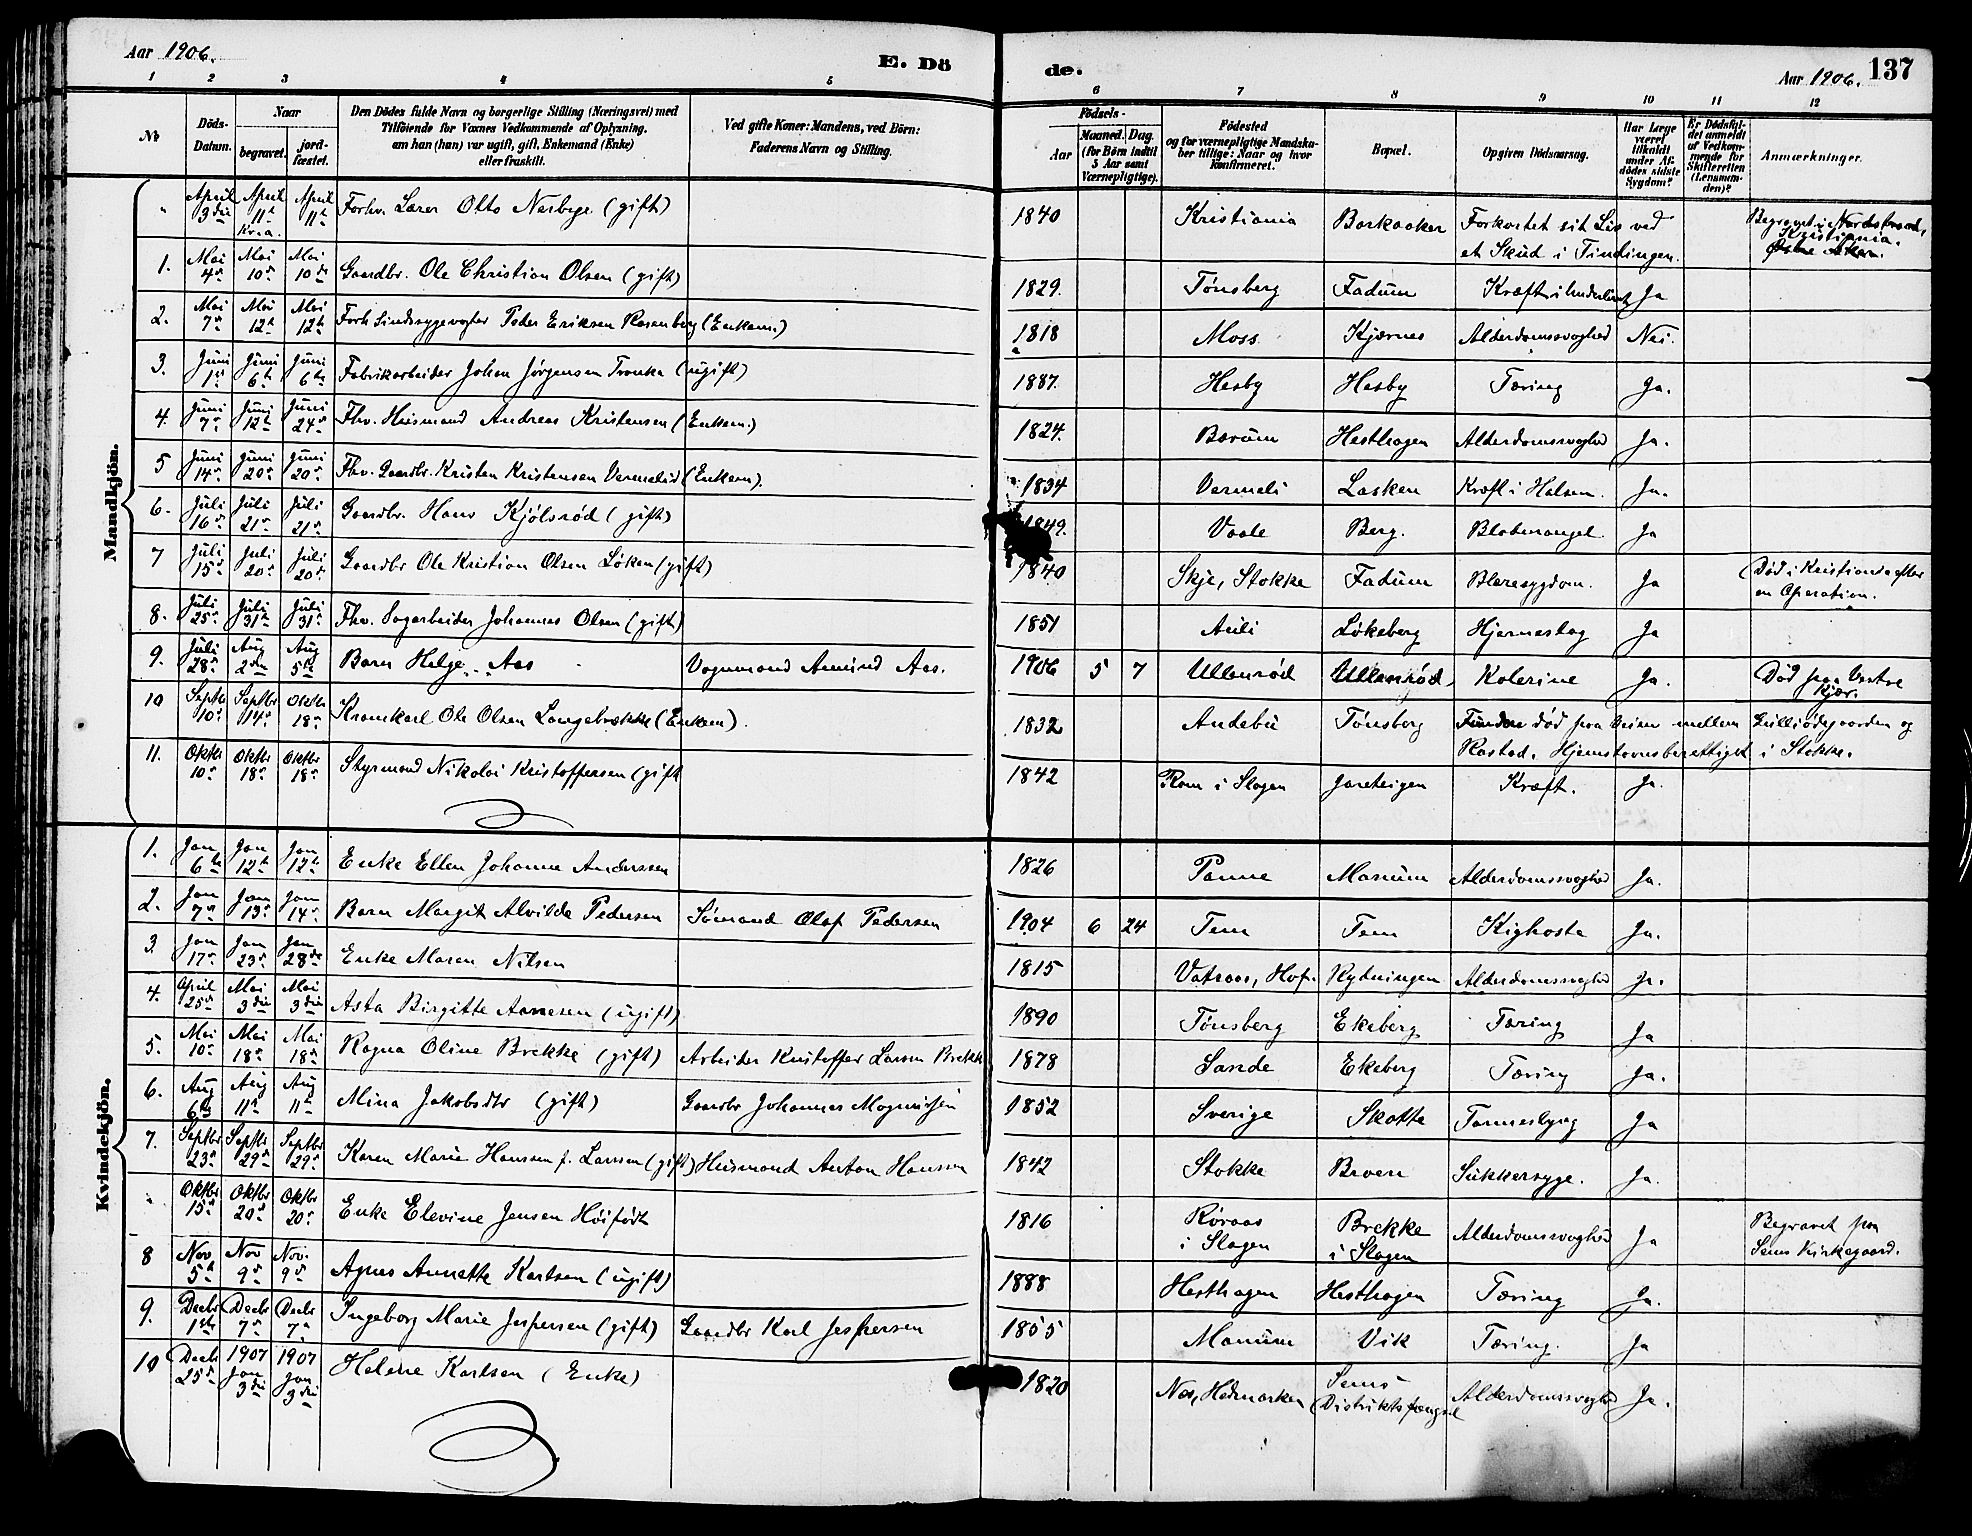 Aar 1906.
E. Dö
de.
Aar 1906. 137
1 2 3 4 5 6 7 8 9 10 11 12
No
Döds-Datum.
Naar
begravet.
jordfæstet.
Den Dödes fulde Navn og borgerlige Stilling (Næringsvei) med
Tilföiende for Voxnes Vedkommende af Oplysning.
om han (hun) var ugift, gift, Enkemand (Enke)
eller fraskilt.
Ved gifte Koner: Mandens, ved Börn:
Faderens Navn og Stilling.
Födsels-
Aar
Maaned. Dag.
(for Börn indtil
5 Aar samt
Værnepligtige).
Födested
og for værnepligtige Mandskaber
tillige: Naar og hvor
konfirmeret.
Bopæl.
Opgiven Dödsaarsag.
Har Læge
været
tilkaldt
under Afdödes
sidste
Sygdom?
Er Dödsfaldet
anmeldt
af Vedkommende
for
Skifteretten
(Lensmanden)?
Anmærkninger.
Mandkjön.
" April 3die April 11te Kr.a. April 11te Forhv. Lærer Otto Nerbye (gift) 1840 Kristiania Barkaaker Forkortet sit Liv ved et Skud i Tindingen. Begravet i Nordstrand, Kristiania. Østre Aker.
1. Mai 4de Mai 10de Mai 10de Gaardbr. Ole Christian Olsen (gift) 1829. Tønsberg Fadum Kræft i Underlivet Ja
2. Mai 7de Mai 12te Mai 12te Forh Sindssygevogter Peder Eriksen Rosenberg (Enkem.) 1818 Moss Kjærnes Alderdomssvaghed Nei.
3. Juni 1ste Juni 6te Juni 6te Fabrikarbeider Johan Jørgensen Tronka (ugift) 1887. Hesby Hesby Tæring Ja.
4. Juni 7de Juni 12te Juni 24de Fhv. Husmand Andreas Kristensen (Enkem.) 1824. Bærum Hesthagen Alderdomssvaghed Ja.
5 Juni 14de Juni 20de Juni 20de Fhv. Gaardbr. Kristen Kristensen Vermelid (Enkem). 1834 Vermeli Lasken Kræft i Halsen. Ja.
6. Juli 16de Juli 21de Juli 21de Gaardbr. Hans Kjølsrød (gift) 1849. Vaale Berg. Blodmangel Ja
7 Juli 15de Juli 20de Juli 20de Gaardbr Ole Kristian Olsen Løken (gift) 1840 Skje, Stokke Fadum Blæresygdom. Ja Død i Kristiania efter en Operation.
8. Juli 25de Juli 31te Juli 31te Fhv. Sagarbeider Johannes Olsen (gift) 1851 Auli Løkeberg Hjerneslag Ja
9. Juli 28de Aug 2den Aug 5te Barn Helge Aas Vognmand Amund Aas. 1906 5 7 Ullenrød Ullenrød Kolerine Ja. Død paa Vestre Kjær.
10 Septbr 10de Septbr 14de Oktbr 18de Kramkarl Ole Olsen Langebrække (Enkem). 1832 Andebu Tønsberg død paa Veien mellem Gulliødegaarden og Rastad. Hjemstavnsberettiget i Stokke.
11. Oktbr 10de Oktbr 18de Oktbr 18de Styrmand Nikolai Kristoffersen (gift 1842 Rom i Slagen Jareteigen Kræft. Ja.
Kvindekjön.
1. Jan 6te Jan 12te Jan 12te Enke Ellen Johanne Anderssen 1826 Panne Manum Alderdomssvaghed Ja.
2. Jan 7de Jan 13de Jan 14de Barn Margit Alvilde Pedersen Sømand Olaf Pedersen 1904 6 24 Tem Tem Kighoste Ja.
3. Jan 17de Jan 23de Jan 28de Enke Maren Nilsen 1815 Vataas, Hof. Rydningen Alderdomssvaghed Ja.
4. April 25de Mai 3die Mai 3die Asta Birgitte Arnesen (ugift) 1890 Tønsberg Ekeberg Tæring Ja
5. Mai 10de Mai 18de Mai 18de Ragna Oline Brekke (gift) Arbeider Kristoffer Larsen Brekk 1878 Sande Ekeberg Tæring Ja.
6. Aug 6te Aug 11te Aug 11te Mina Jakobsdtr (gift) Gaardbr Johannes Magnussen 1852 Sverige Skotta Tarmeslyng Ja
7. Septbr 23de Septbr 29de Septbr 29de Karen Marie Hanssen f. Larssen (gift) Husmand Anton Hanssen 1842 Stokke Broen Sukkersyge. Ja.
" Oktbr 15de Oktbr 20de Oktbr 20de Enke Elevine Jensen Høifødt 1816 Røraas i Slagen Brekke i Slagen Alderdomssvaghed Ja Begravet paa Sems Kirkegaard.
8 Nov 5te Nov 9de Nov. 9de Agnes Annette Karlsen (ugift) 1888 Hesthagen Hesthagen Tæring Ja.
9. Decbr 1ste Decbr 7de Decbr 7de Ingeborg Marie Jespersen (gift) Gaardbr Karl Jespersen 1855 Manum Vik Tæring. Ja
10 Decbr 25de 1907 Jan 3die 1907 Jan 3die Helene Karlsen (Enke) 1820 Nes, Hedmarken Sems Distriktsfængsel Alderdomssvaghed Ja.